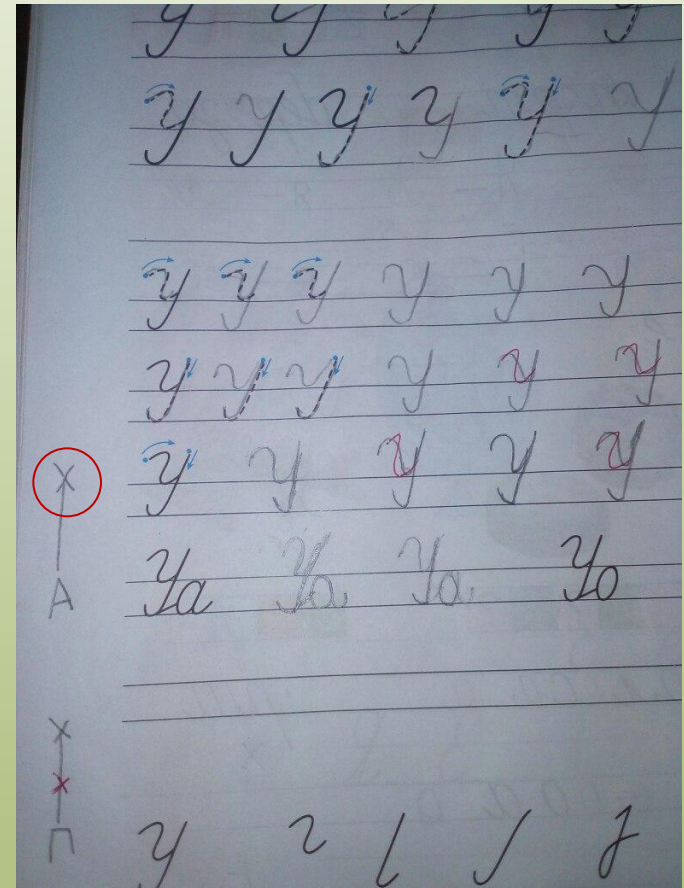 У У У У У
У У У У У У
У У У У У У
У У У У У У
У У У У У
А
Уа Уа Уа Уо
П
У